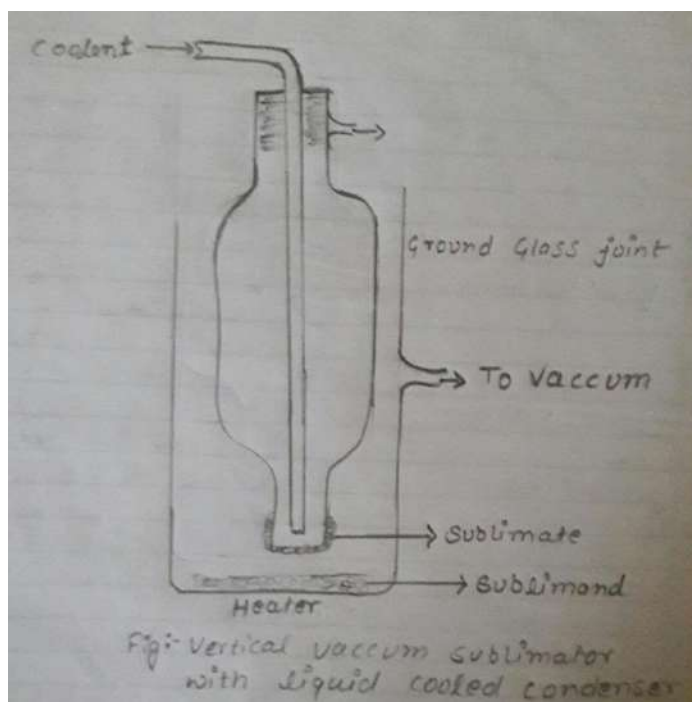 Coolent
Ground Glass joint
To Vaccum
Sublimate
Sublimand
Heater
Fig:- Vertical vaccum sublimator
with liquid cooled condenser